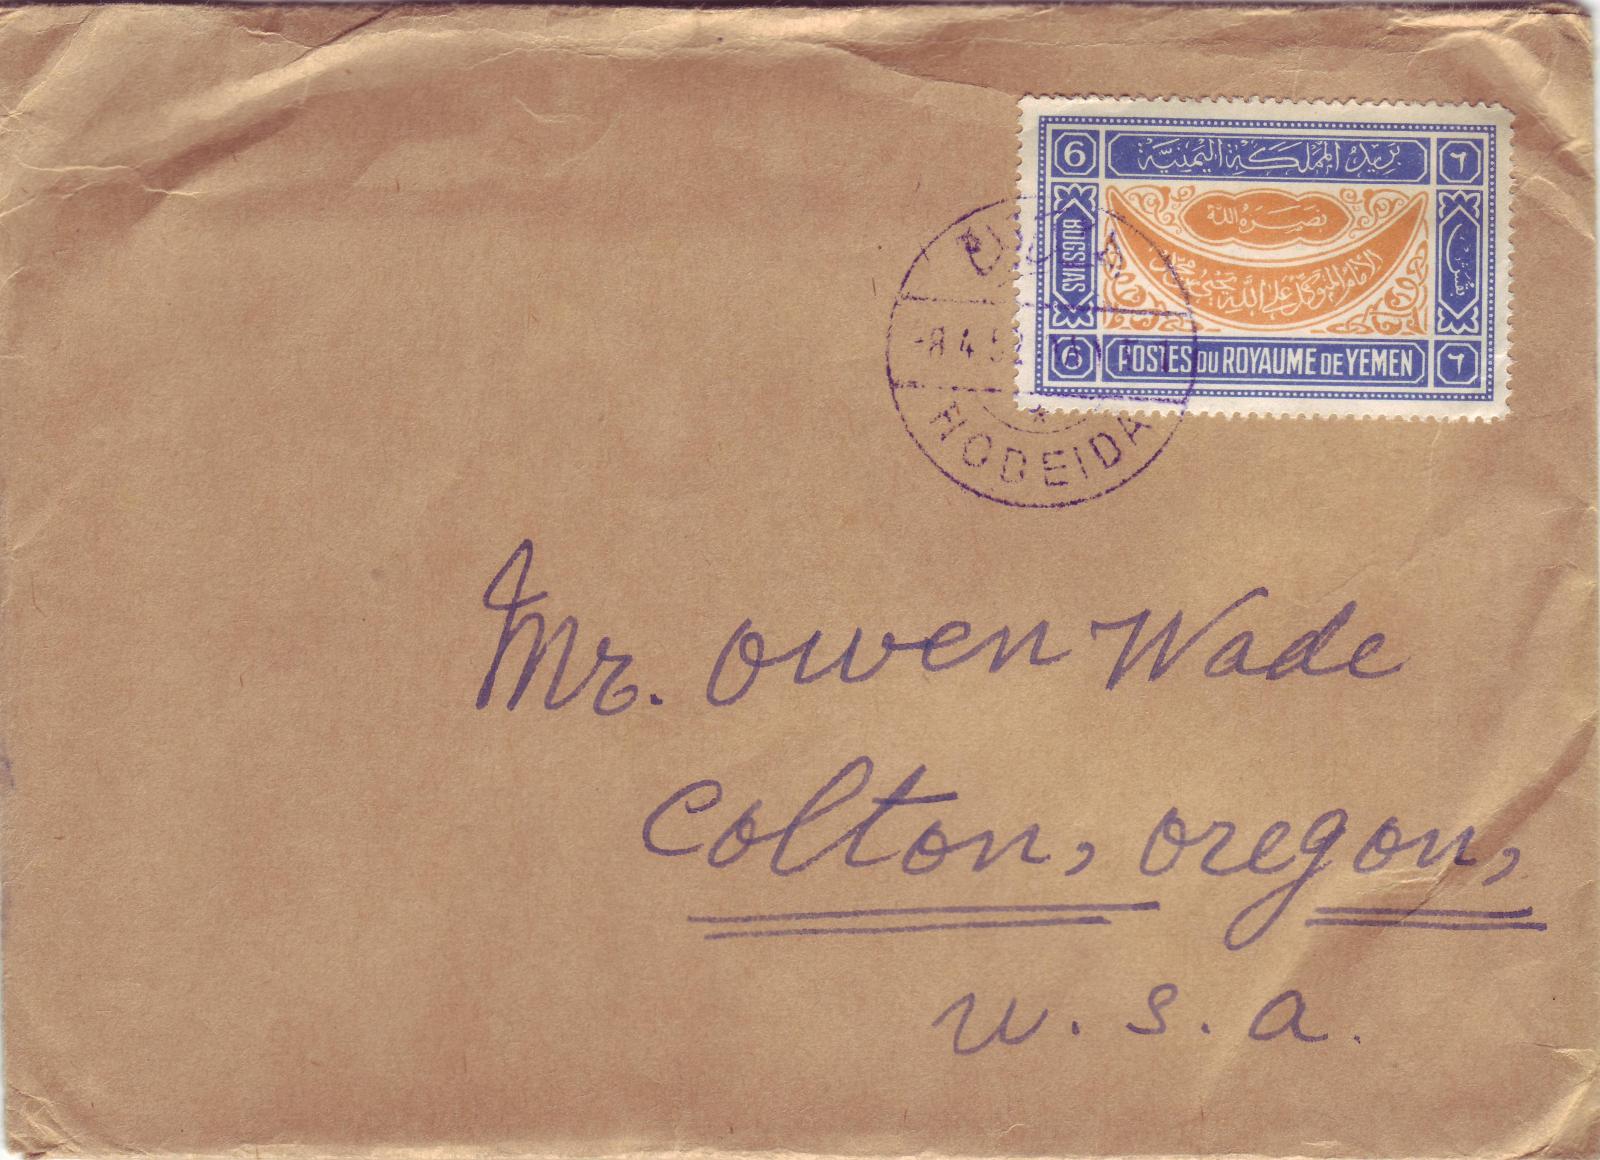 6 بريد المملكة اليمنية ٦
نصره الله
الإمام المتوكل على الله يحيى بن محمد
BOGSHAS
بقش
6 POSTES DU ROYAUME DE YEMEN ٦
-8.4.5
HODEIDA
Mr. Owen Wade
Colton, Oregon,
U. S. A.